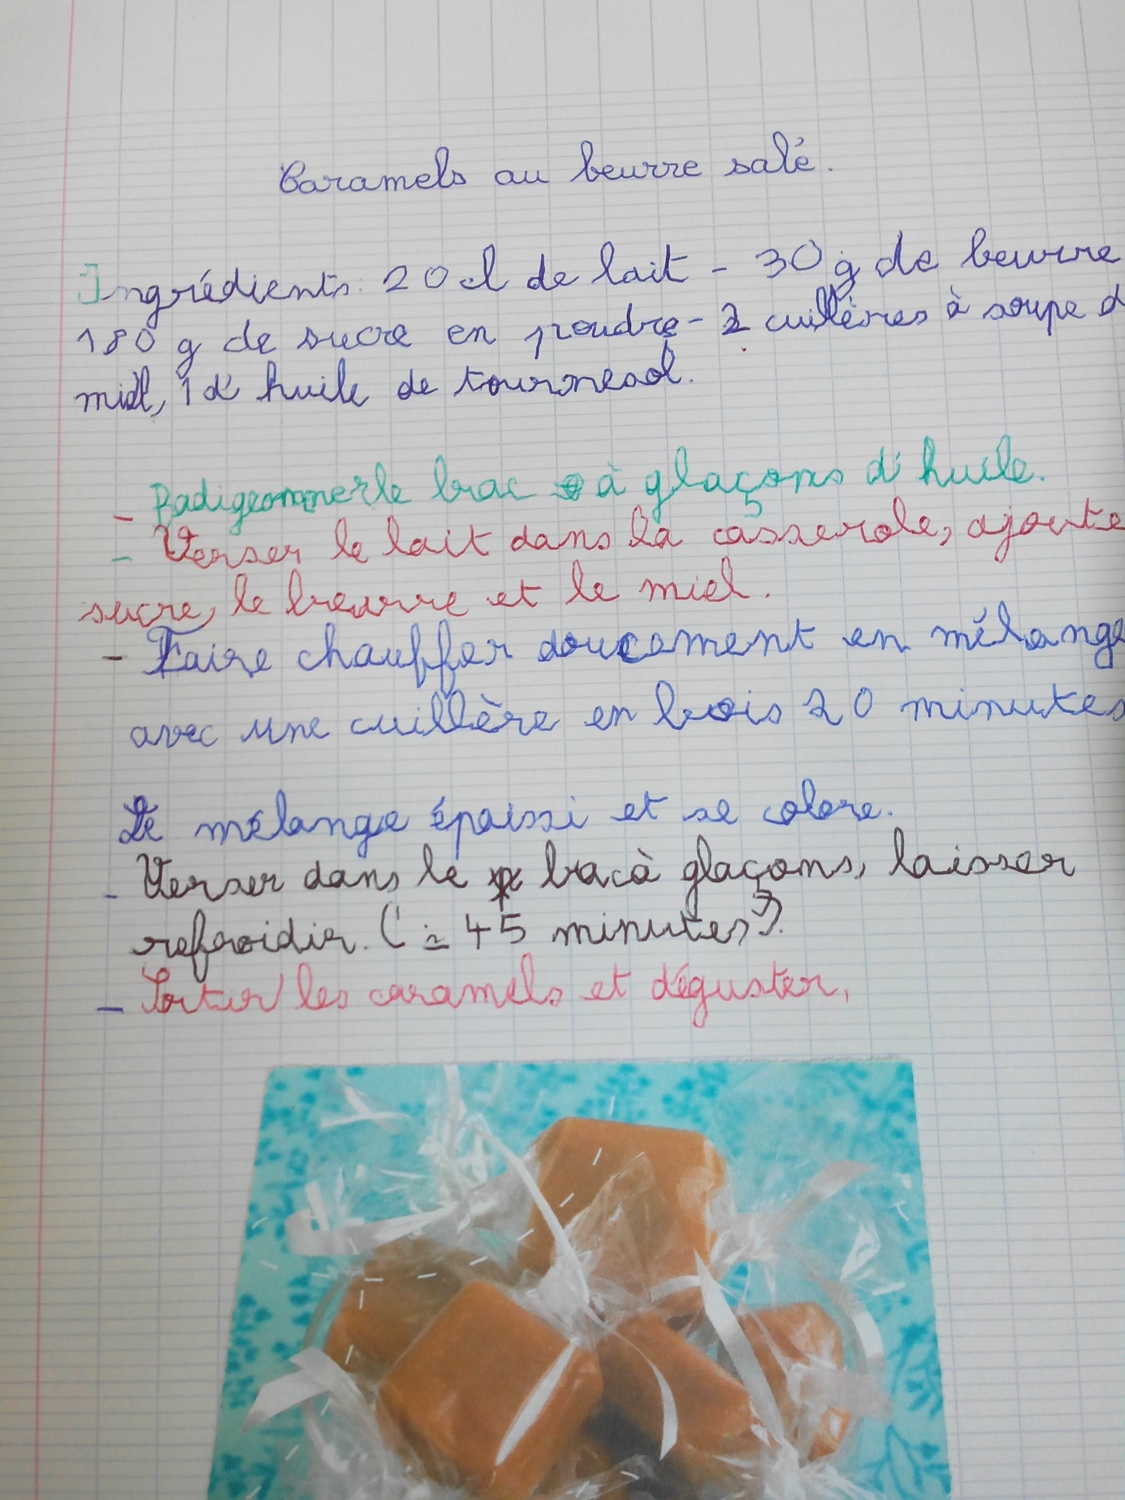 Caramels au beurre salé.
Ingrédients: 20 cl de lait - 30 g de beurre
180 g de sucre en poudre - 2 cuillères à soupe d
miel, 1 d' huile de tournesol.
- Badigeonner le bac à glaçons d'huile.
- Verser le lait dans la casserole, ajoute
sucre, le beurre et le miel.
- Faire chauffer doucement en mélange
avec une cuillère en bois 20 minutes
Le mélange épaissi et se colore.
- Verser dans le bac à glaçons, laisser
refroidir. (≃ 45 minutes).
- Sortir les caramels et déguster.